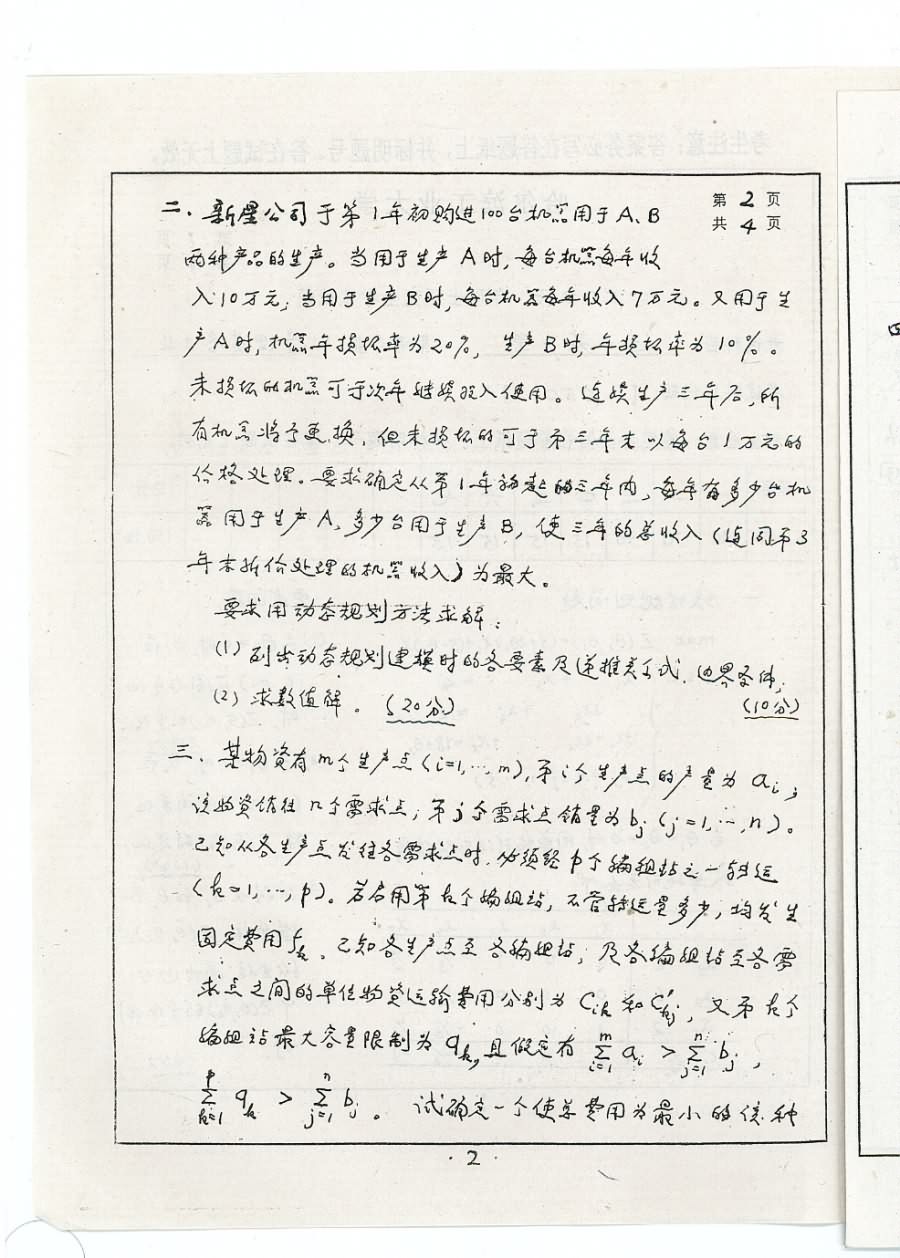 第 2 页
共 4 页
二、新星公司于第1年初购进100台机器用于A、B
两种产品的生产。当用于生产A时,每台机器每年收
入10万元;当用于生产B时,每台机器每年收入7万元。又用于生
产A时,机器年损坏率为20%,生产B时,年损坏率为10%。
未损坏的机器可于次年继续投入使用。连续生产三年后,所
有机器将予更换,但未损坏的可于第三年末以每台1万元的
价格处理。要求确定从第1年初起的三年内,每年有多少台机
器用于生产A,多少台用于生产B,使三年的总收入(连同第3
年末折价处理的机器收入)为最大。
要求用动态规划方法求解:
(1)列出动态规划建模时的各要素及递推关系式、边界条件;
(10分)
(2)求数值解。(20分)
三、某物资有m个生产点(i=1,…,m),第i个生产点的产量为ai,
该物资销往n个需求点,第j个需求点销量为bj(j=1,…,n)。
已知从各生产点发往各需求点时,必须经p个编组站之一转运
(k=1,…,p)。若启用第k个编组站,不管转运量多少,均发生
固定费用fk。已知各生产点至各编组站,及各编组站至各需
求点之间的单位物资运输费用分别为Cik和C'kj,又第k个
编组站最大容量限制为qk,且假定有 ∑(i=1..m) ai > ∑(j=1..n) bj,
∑(k=1..p) qk > ∑(j=1..n) bj。试确定一个使总费用为最小的该种
·2·